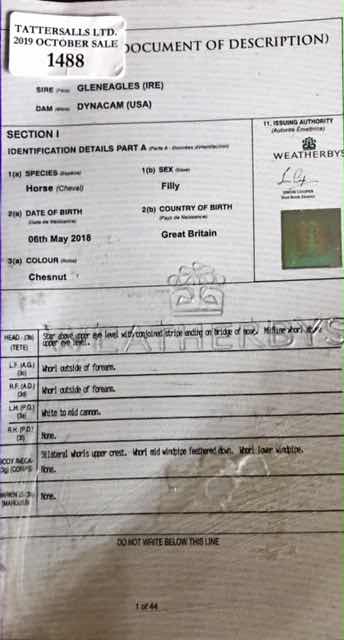 TATTERSALLS LTD.
2019 OCTOBER SALE
1488
DOCUMENT OF DESCRIPTION)
SIRE (Père) GLENEAGLES (IRE)
DAM (Mère) DYNACAM (USA)
SECTION I
IDENTIFICATION DETAILS PART A (Partie A - Données d'identification)
1(a) SPECIES (Espèce)
Horse (Cheval)
1(b) SEX (Sexe)
Filly
2(a) DATE OF BIRTH
(Date de Naissance)
06th May 2018
2(b) COUNTRY OF BIRTH
(Pays de Naissance)
Great Britain
3(a) COLOUR (Robe)
Chesnut
11. ISSUING AUTHORITY
(Autorité Émettrice)
WEATHERBYS
SIMON COOPER
Stud Book Director
WEATHERBYS
HEAD - (3b)
(TETE)
Star above upper eye level with conjoined stripe ending on bridge of nose. Midline whorl above
upper eye level.
L.F. (A.G.)
(3c)
Whorl outside of forearm.
R.F. (A.D.)
(3d)
Whorl outside of forearm.
L.H. (P.G.)
(3e)
White to mid cannon.
R.H. (P.D.)
(3f)
None.
BODY
3(g) (CORPS)
Bilateral whorls upper crest. Whorl mid windpipe feathered down. Whorl lower windpipe.
None.
(MARQUES)
None.
DO NOT WRITE BELOW THIS LINE
1 of 44